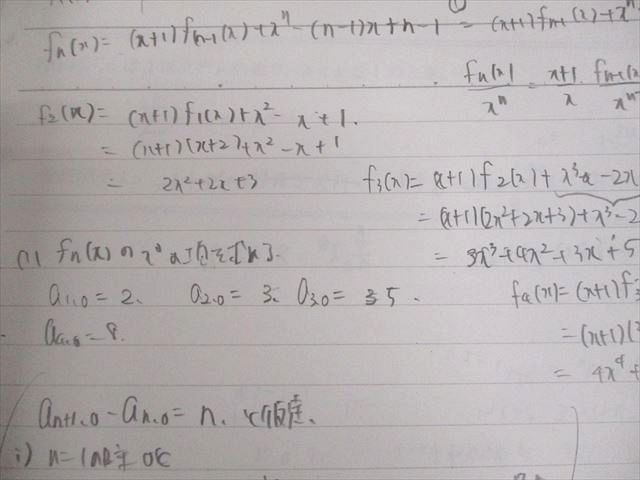 ①
fn(x) = (x+1)fn-1(x)+x^n-(n-1)x+n-1 = (x+1)fn-1(x)+x^n
fn(x)/x^n = x+1/x fn-1(x
f2(x) = (x+1)f1(x)+x²-x+1.
= (x+1)(x+2)+x²-x+1
= 2x²+2x+3
f3(x) = (x+1)f2(x)+x³ -2x
= (x+1)(2x²+2x+3)+x³-2
= 3x³+4x²+3x+5
(1) fn(x)の x⁰
a1,0 = 2, a2,0 = 3, a3,0 = 5.
f4(x) = (x+1)f3
a4,0 = 8.
= (x+1)(3
= 4x⁴+
an+1,0 - an,0 = n. と仮定、
i) n=1の時 OK